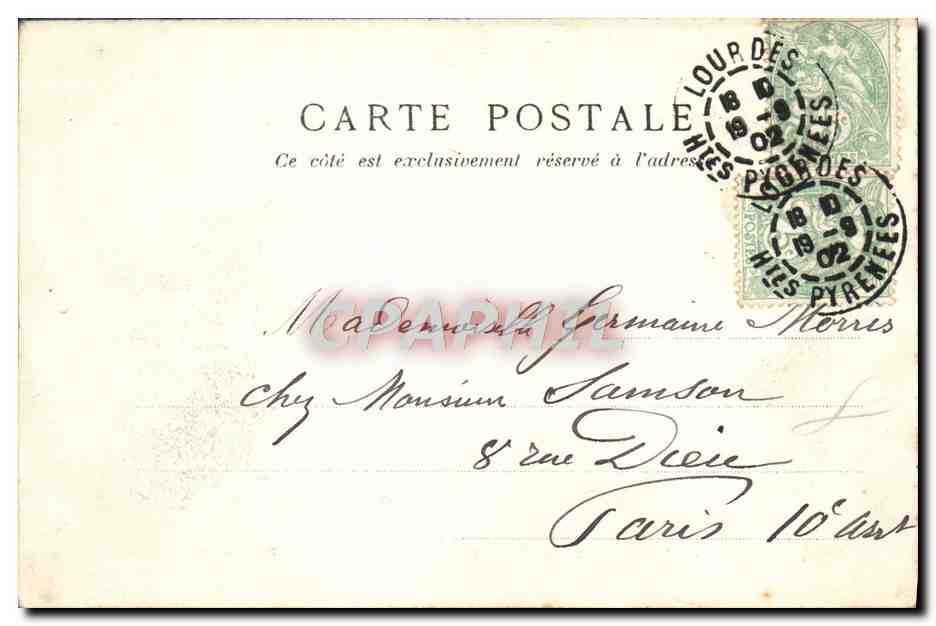 CARTE POSTALE
Ce côté est exclusivement réservé à l'adresse
LOURDES
18 10
19 - 9
02
Htes PYRENEES
LOURDES
18 10
19 - 9
02
Htes PYRENEES
POSTES
CPAPHIL
Mademoiselle Germaine Morris
chez Monsieur Samson
8 rue Dieu
Paris 10e arrt